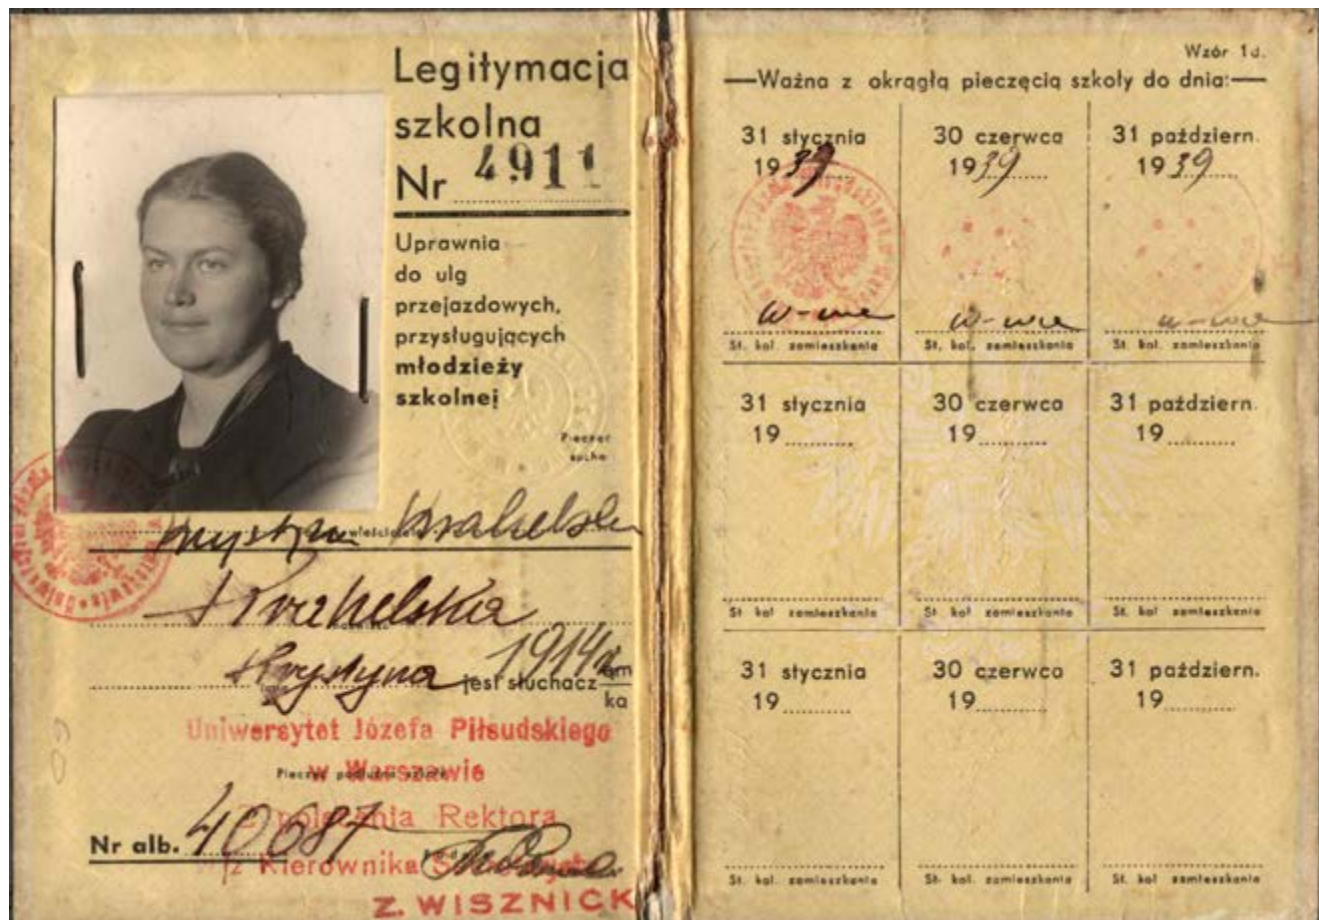 Legitymacja
szkolna
Nr 4911
Uprawnia
do ulg
przejazdowych,
przysługujących
młodzieży
szkolnej
Pieczęć
sucha
Krystyna Krahelska
Krahelska
Krystyna 1914
jest słuchacz em
ka
Uniwersytet Józefa Piłsudskiego
w Warszawie
Z polecenia Rektora
Nr alb. 40687
z Kierownika
Z. WISZNICK
Wzór 1d.
Ważna z okrągłą pieczęcią szkoły do dnia:
31 stycznia 30 czerwca 31 październ.
1939 1939 1939
W-wa W-wa W-wa
St. kol. zamieszkania St. kol. zamieszkania St. kol. zamieszkania
31 stycznia 30 czerwca 31 październ.
19 19 19
St. kol. zamieszkania St. kol. zamieszkania St. kol. zamieszkania
31 stycznia 30 czerwca 31 październ.
19 19 19
St. kol. zamieszkania St. kol. zamieszkania St. kol. zamieszkania